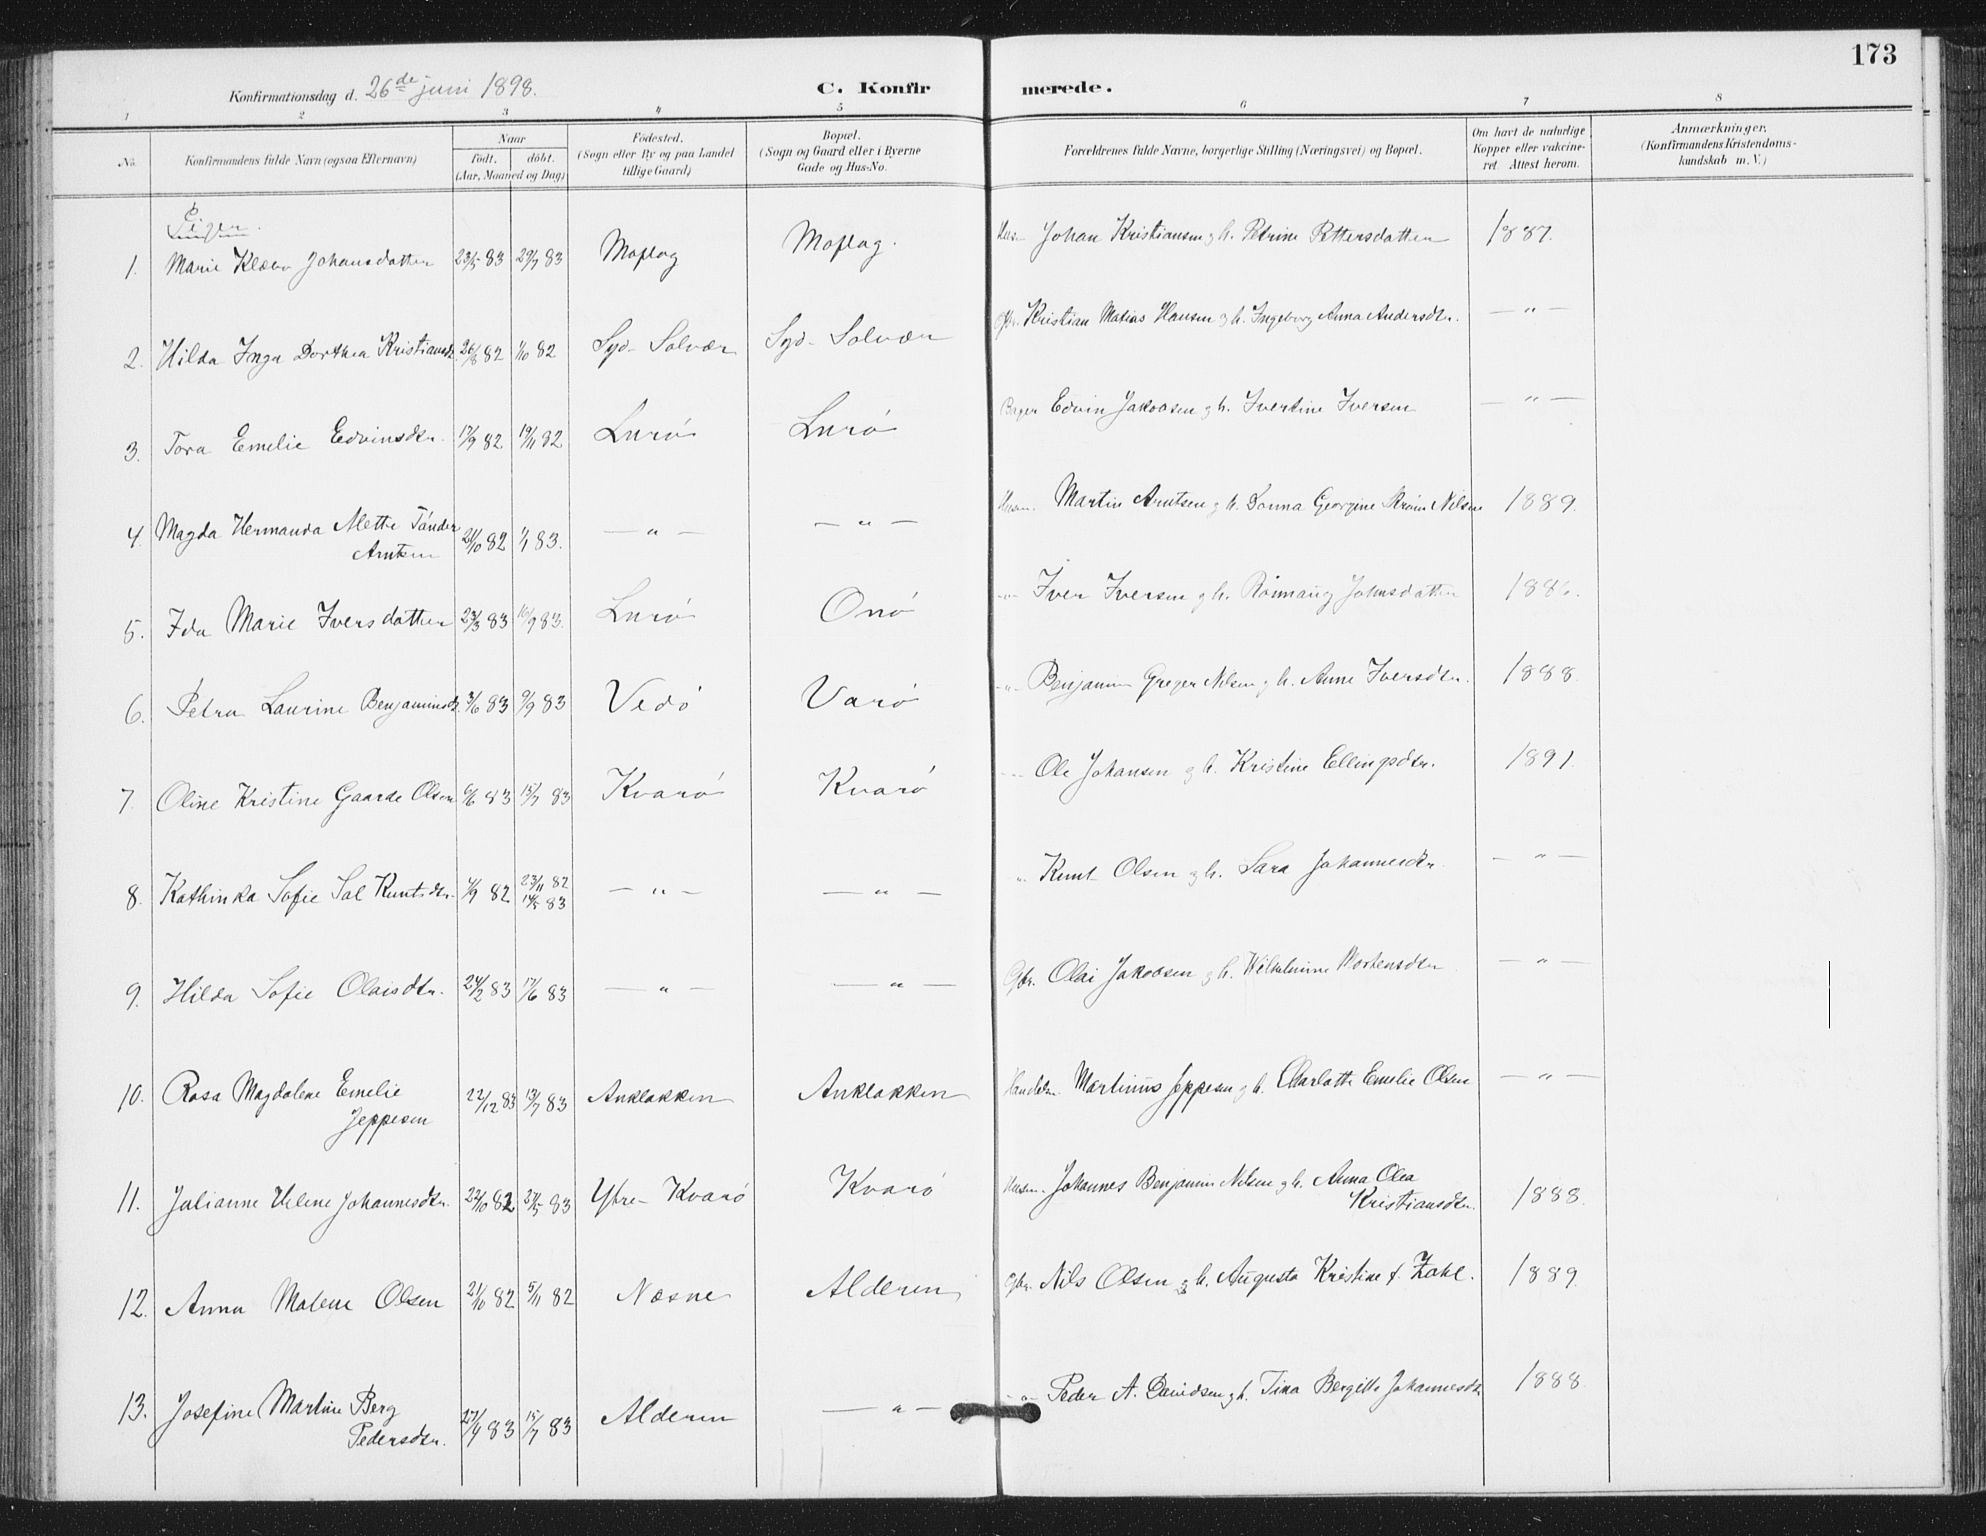 173
Konfirmationsdag d. 26de juni 1898. C. Konfirmerede.
1 2 3 4 5 6 7 8
No. Konfirmandens fulde Navn (ogsaa Efternavn) Naar født. døbt. (Aar, Maaned og Dag) Fødested. (Sogn eller By og paa Landet tillige Gaard) Bopæl. (Sogn og Gaard eller i Byerne Gade og Hus-No. Forældrenes fulde Navne, borgerlige Stilling (Næringsvei) og Bopæl. Om havt de naturlige Kopper eller vakcineret. Attest herom. Anmærkninger. (Konfirmandens Kristendomskundskab m. V.)
Piger.
1. Marie Klæbo Johansdatter 23/5 83 29/7 83 Moflag Moflag. Husm. Johan Kristiansen og h. Petrine Pettersdatter 1887.
2. Hilda Inga Dorthea Kristiansdt. 26/8 82 1/10 82 Syd-Solvær Syd-Solvær Gbr. Kristian Matias Hansen og h. Ingeborg Anna Andersdtr. — " —
3. Tora Emelie Edvinsdtr. 17/9 82 19/11 82 Lurø Lurø Bager Edvin Jakobsen og h. Ivertine Iversen — " —
4. Magda Hermanda Mette Tønder Arntsen 21/10 82 1/1 83. — " — — " — Husm. Martin Arntsen og h. Georgine Nilsen 1889.
5. Ida Marie Iversdatter 23/3 83 16/9 83. Lurø Onø — " — Iver Iversen og h. Johnsdatter
6. Petra Laurine Benjaminsdt. 3/6 83 9/9 83 Vedø Varø — " — Benjamin Greger Nilsen og h. Anne Iversdtr. 1888.
7. Oline Kristine Gaarde Olsen 6/6 83 15/7 83 Kvarø Kvarø — " — Ole Johansen og h. Kristine Ellingsdtr. 1891.
8. Kathinka Sofie Sol Kuntsdtr. 4/9 82 23/11 82 14/5 83 — " — — " — " Kunt Olsen og h. Sara Johannesdtr. — " —
9. Hilda Sofie Olaisdtr. 24/2 83 17/6 83 — " — — " — Gbr. Olai Jakobsen og h. Wilhelmine Mortensdtr — " —
10. Rosa Magdalene Emelie Jeppesen 22/12 83 13/7 83 Anklakken Anklakken Handelsm. Martinus Jeppesen og h. Charlotte Emelie Olsen — " —
11. Julianne Helene Johannesdtr. 22/10 82 27/5 83 Ytre-Kvarø Kvarø Husm. Johannes Benjamin Nilsen og h. Anna Olea Kristiansdtr. 1888.
12. Anna Malene Olsen 21/10 82 5/11 82 Næsne Alderen Gbr. Nils Olsen og h. Augusta Kristine f. Zahl. 1889.
13. Josefine Martine Berg Pedersdtr. 27/4 83 15/7 83 Alderen — " — — " — Peder A. Davidsen og h. Tina Bergitte Johannesdt. 1888.